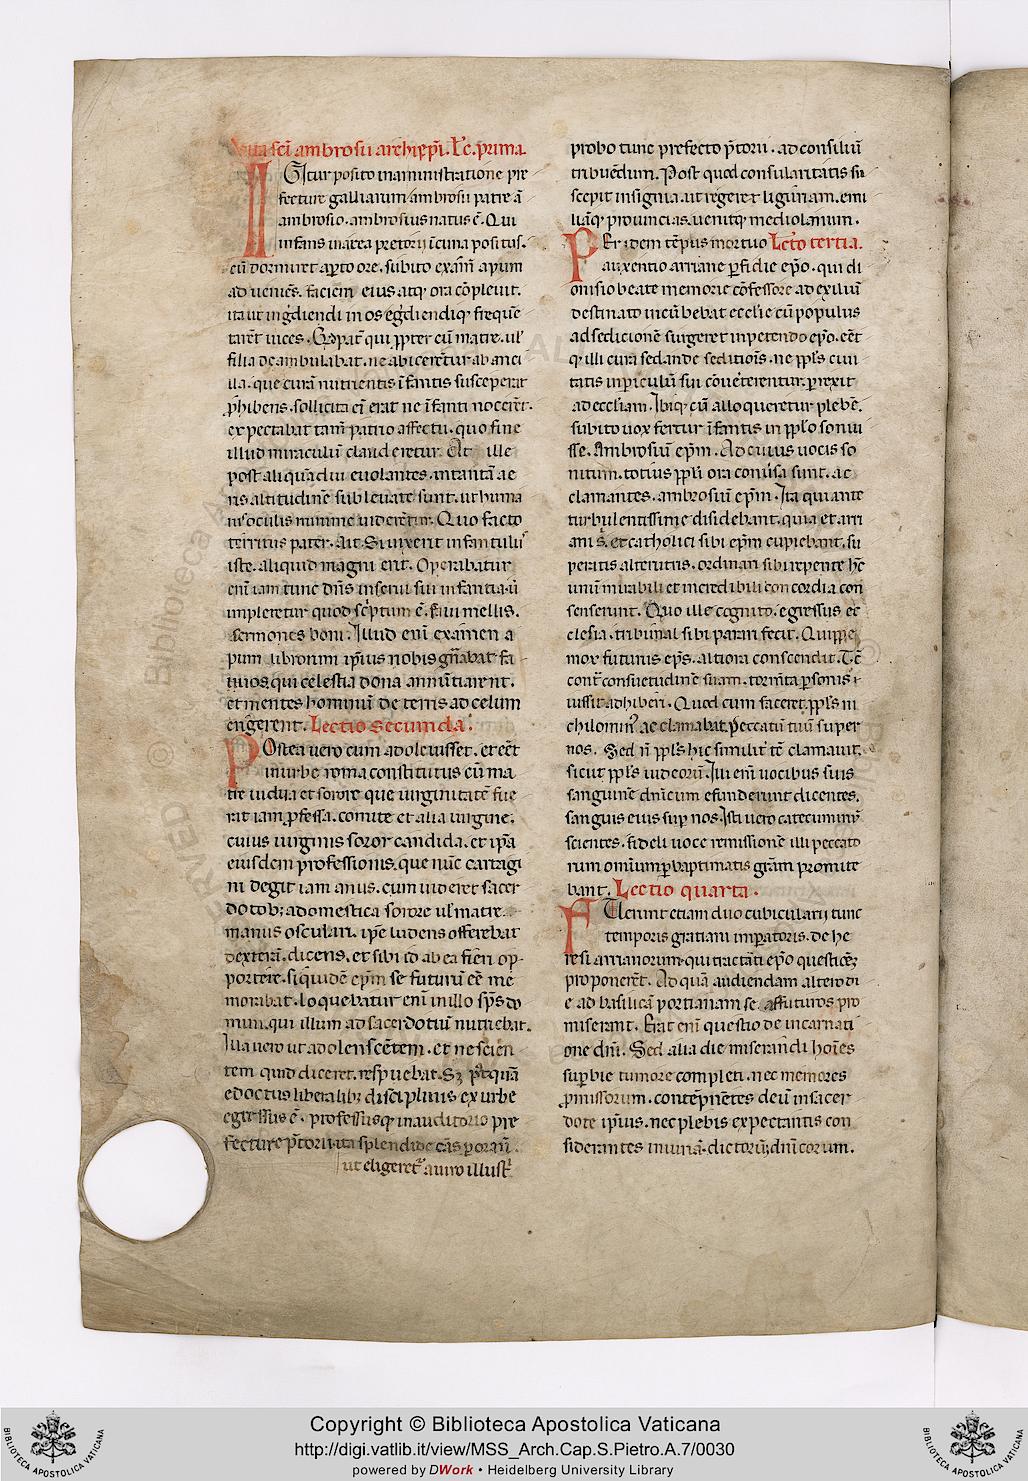 Vita sc̄i ambrosii archiep̄i. Lc̄. prima.
IGitur posito in aministratione pre
fecture galliarum ambrosii patre a᷑
ambrosio. ambrosius natus ē. Qui
infans in area pretorii ī cuna positus.
cū dormiret apto ore. subito exam̄ apum
adueniēs. faciem eius atq; ora cōpleuit.
ita ut ingdiendi in os egdiendiq; frequē
taret uices. Qs pat̄ qui ꝓpter cū matre. ul'
filia deambulabat. ne abicerētur ab anci
lla. que curā nutrientis īfantis susceperat
ꝓhibens. sollicita eī erat ne īfanti nocerēt.
expectabat tam̄ patrio affectu. quo fine
illud miraculū clauderetur. At ille
post aliquādiu euolantes. in tantā ae
ris altitudinē subleuate sunt. ut huma
nis oculis minime uiderētur. Quo facto
territus pater. Ait. Si uixerit infantulus
iste. aliquid magni erit. Operabatur
enī iam tunc dn̄s in serui sui infantia. ū
impleretur quod sc̄ptum ē. faui mellis.
sermones boni. Illud enī examen a
pum librorum ip̄ius nobis gn̄abat fa
uuos, qui celestia dona annūtiarent.
et mentes hominū de terris ad celum
erigerent. Lectio secunda.
POstea uero cum adoleuisset. et eēt
in urbe roma constitutus cū ma
tre uidua et sorore que uirginitatē fue
rat iam ꝓfessa. comite et alia uirgine.
cuius uirginis soror candida. et ip̄a
eiusdem professionis. que nūc cartagi
ni degit iam anus. cum uideret sacer
dotob; a domestica sorore ul' matre
manus osculari. ip̄e ludens offerebat
dexterā. dicens. et sibi id ab ea fieri op
portere. siquidē ep̄m se futurū eē me
morabat. loquebatur enī in illo sp̄s do
mini. qui illum ad sacerdotiū nutriebat.
Illa uero ut adolenscētem. et nescien
tem quid diceret. respuebat. S; p̄tquā
edoctus liberalib; disciplinis ex urbe
egressus ē. professusq; in auditorio pre
fecture p̄torii ita splendide cās perorauī.
ut eligeret᷑ a uiro illust᷑
probo tunc prefecto p̄torii. ad consiliū
tribuēdum. Post quod consularitatis su
scepit insignia. ut regeret ligūriam. emi
liāq; prouincias. uenitq; mediolanum.
PEr idem tēpus mortuo Lectō tertia.
auxentio arriane ꝑfidie ep̄o. qui di
onisio beate memorie cōfessore ad exiliū
destinato incūbebat ecclie cū populus
ad seditionē surgeret in petendo ep̄o. eēt
q; illi cura sedande seditiōis. ne ppl̄s ciui
tatis in ꝑiculū sui cōueterentur. perrexit
ad eccl̄iam. Ibiq; cū alloqueretur plebē.
subito uox fertur īfantis in ppl̄o sonui
sse. Ambrosiū ep̄m. Ad cuius uocis so
nitum. totius ppl̄i ora conūsa sunt. ac
clamantes. ambrosiū ep̄m. Ita qui ante
turbulentissime disidebant. quia et arri
ani s̄. et catholici sibi ep̄m cupiebant. su
peratis alterutris. ordinari sibi repente hc̄
unū mirabili et incredibili concordia con
senserunt. Quo ille cognito. egressus ec
clesia. tribunal sibi parari fecit. Quippe
mox futurus ep̄s. altiora conscendit. Tc̄
cont̄ consuetudinē suam. tormta ꝑsonis i
ussit adhiberi. Quod cum faceret. ppl̄s ni
chilomin᷒ acclamabat. Peccatū tuū super
nos. Sed n̄ ppl̄s hic similit̄ tc̄ clamauit.
sicut ppl̄s iudeorū. Illi enī uocibus suis
sanguinē dn̄icum efunderunt dicentes.
sanguis eius suꝑ nos. Isti uero catecuminū
scientes. fideli uoce remissionē illi peccato
rum omniūm ꝑ baptimatis gr̄am promitte
bant. Lectio quarta.
FUerunt etiam duo cubicularii tunc
temporis gratiani imꝑatoris. de he
resi arrianorum. qui tractāti ep̄o questiōēz
proponerēt. Ad quā audiendam altero di
e ad basilicā portianam se affuturos pro
miserant. Erat enī questio de incarnati
one dn̄i. Sed alia die miserandi hoīes
suꝑbie tumore completi. nec memores
ꝓmissorum. contēpnētes deū in sacer
dote ip̄ius. nec plebis expectantis con
siderantes iniuriā. dictorūq; dn̄icorum.
Copyright © Biblioteca Apostolica Vaticana
http://digi.vatlib.it/view/MSS_Arch.Cap.S.Pietro.A.7/0030
powered by DWork • Heidelberg University Library
BIBLIOTECA APOSTOLICA VATICANA
BIBLIOTECA APOSTOLICA VATICANA